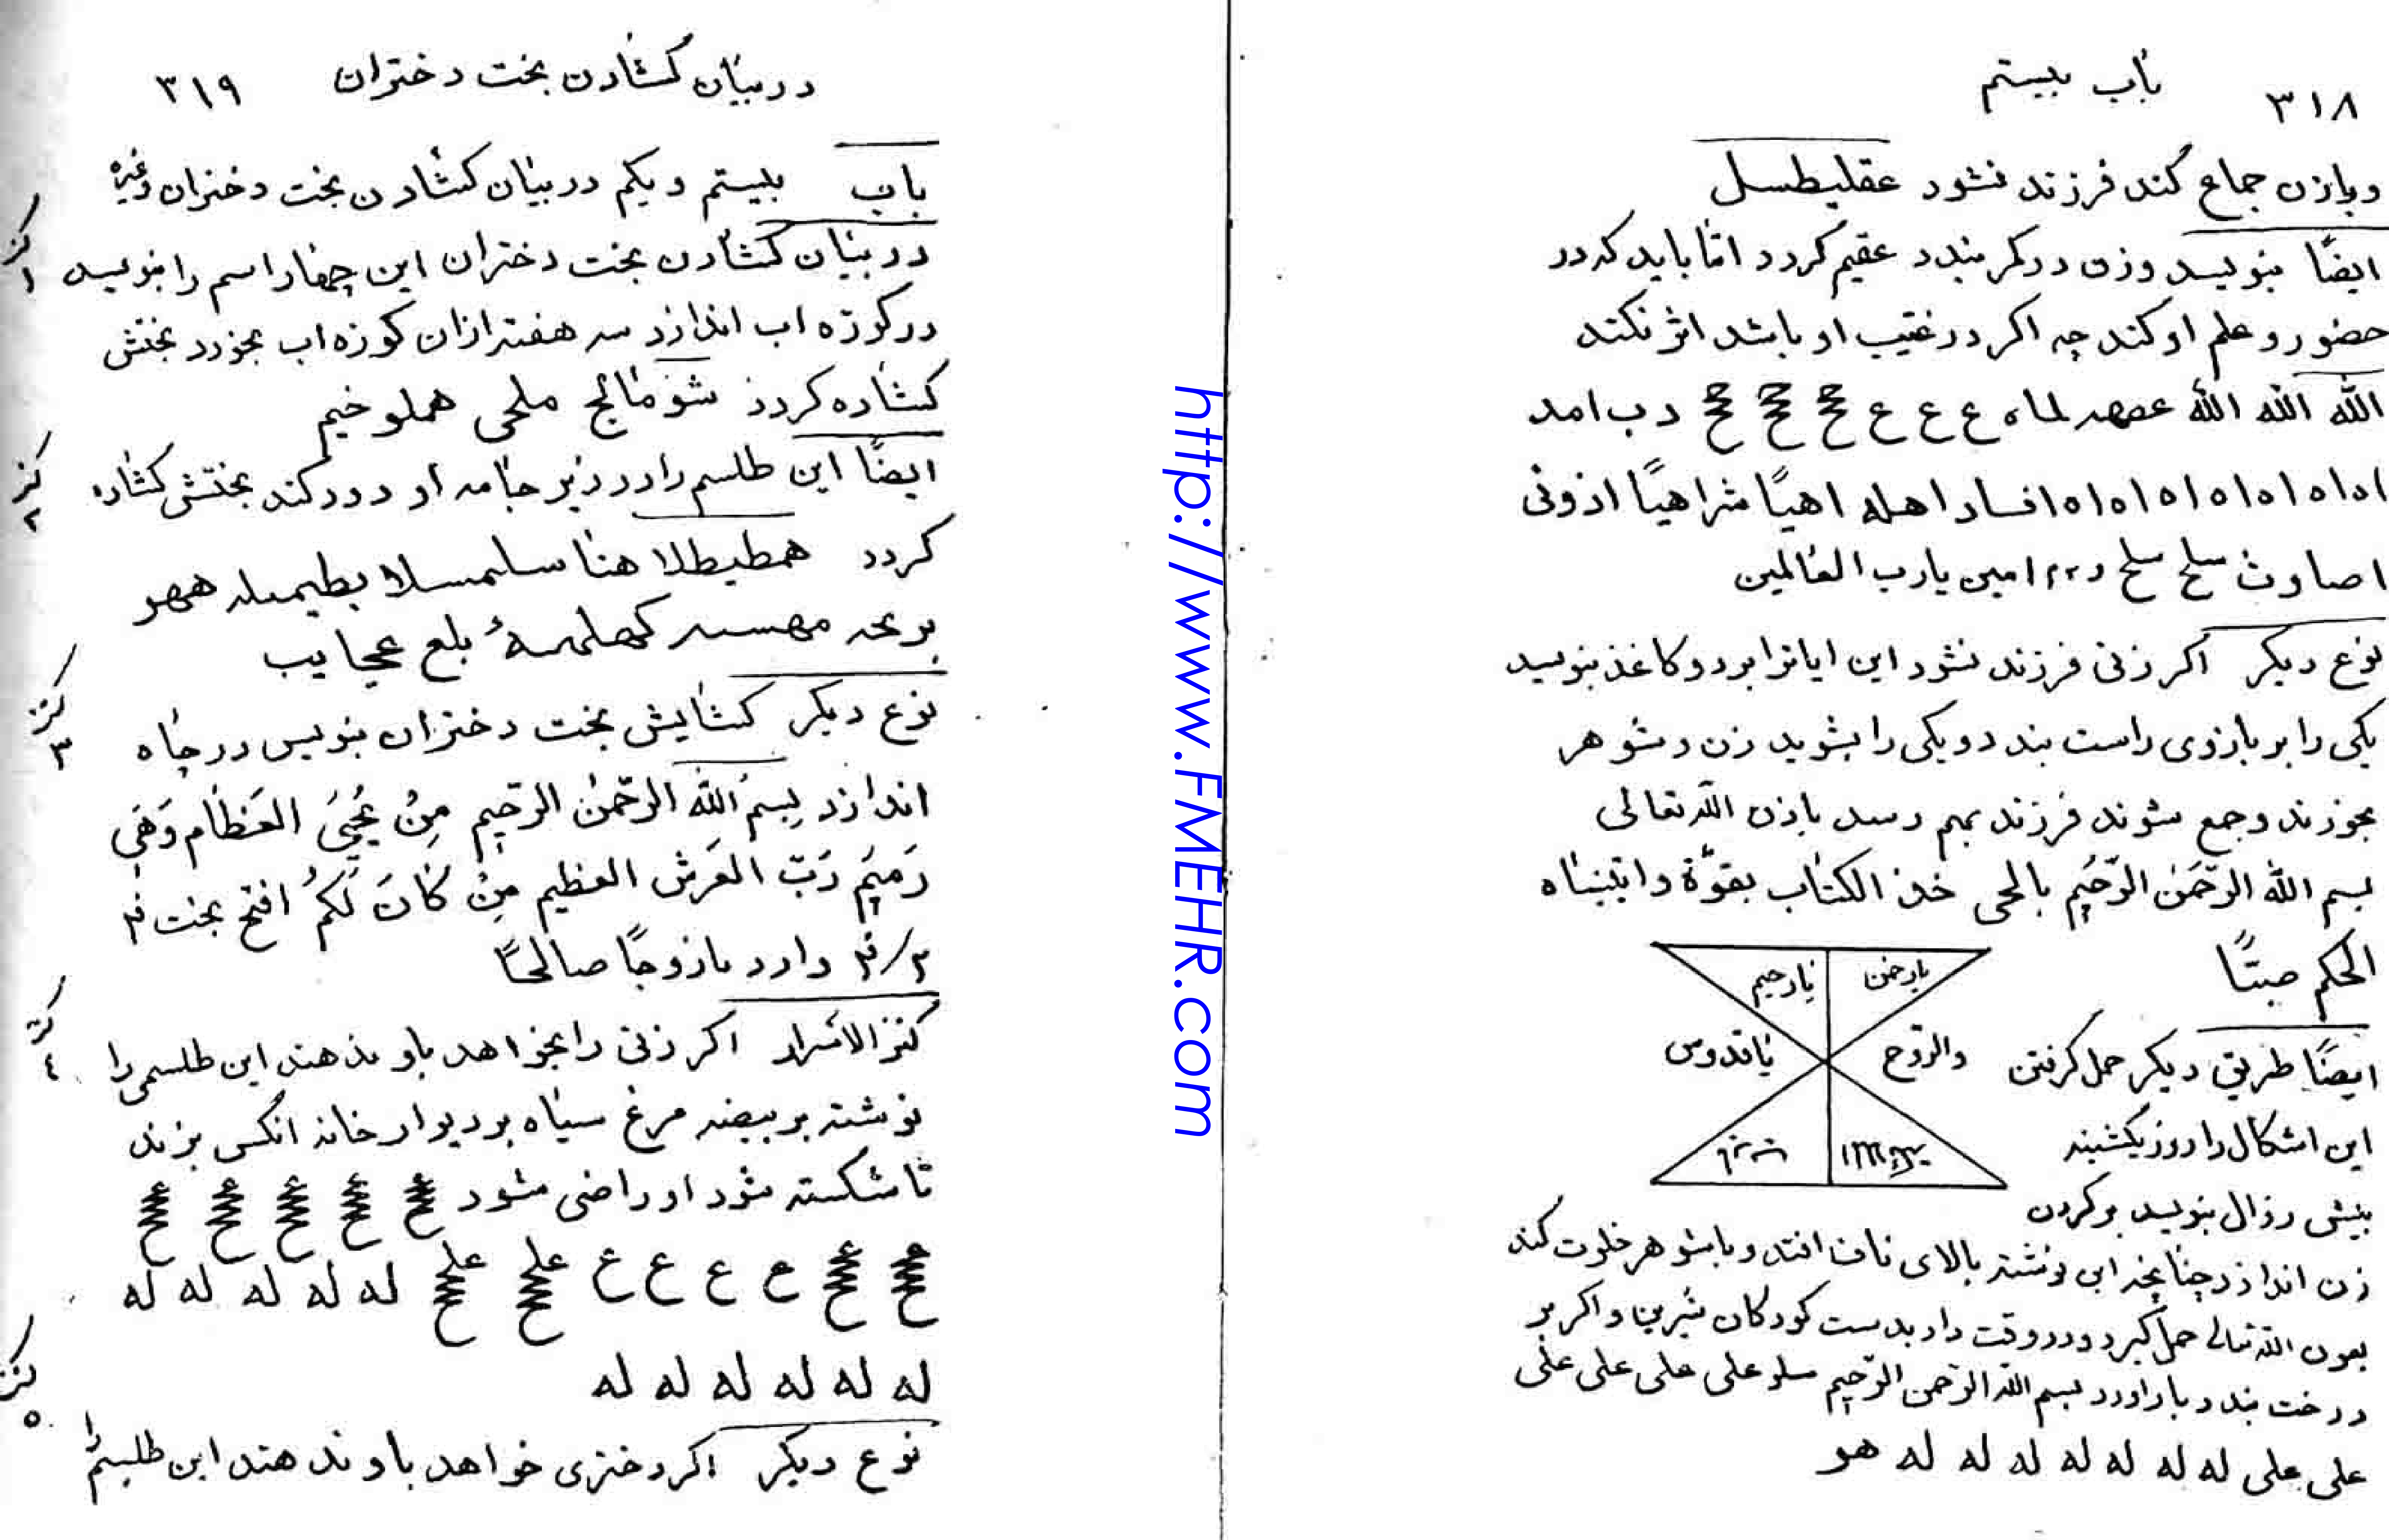 باب بیستم ۳۱۸
وبازن جماع کند فرزند نشود عقلیطسل
ایضًا بنویسد وزن درکمر بندد عقیم کردد امّا باید که در
حضور و علم او کند چه اکر در غیب او باشد اثر نکند
الله الله الله ع ع ع دب امد
اهیًا شراهیًا اذونی
سلح سلح امین یارب العالمین
نوع دیکر اکر زنی فرزند نشود این ایاترا بردو کاغذ بنویسد
یکی را بر بازوی راست بندد و یکی را بشوید زن و شوهر
بخورند وجمع شوند فرزند بهم رسد باذن الله تعالی
بسم الله الرّحمن الرّحیم خذ الکتاب بقوّة واتیناه
الحکم صبیّا
یارحمن یارحیم
والروح یاقدوس
ایضًا طریق دیکر حمل کرفتن
این اشکال را روز یکشنبه
پیش زوال بنویسد برکردن
زن اندازد چنانچه این نوشته بالای ناف افتد و با شوهر خلوت کند
بعون الله تعالی حمل کیرد ودر وقت دارد بدست کودکان شیرین و اکر بر
درخت بندد بار اورد بسم الله الرّحمن الرّحیم علی علی علی علی
علی علی له له له له له له له هو
در بیان کشادن بخت دختران ۳۱۹
باب بیستم ویکم در بیان کشادن بخت دختران وغیره
کنز ۱
در بیان کشادن بخت دختران این چهار اسم را بنویسد
در کوزه اب اندازد سه هفته ازان کوزه اب بخورد بختش
کشاده کردد ملحی هملوخیم
کنز ۲
ایضًا این طلسم را در زیر جامه او دود کند بختش کشاده
کردد همطیطلا هنا
بلع عجایب
کنز ۳
نوع دیکر کشایش بخت دختران بنویس در چاه
اندازد بِسمِ الله الرّحمن الرّحیم مِن یُحیِی العَظام وَهَی
رَمیَم رَبّ العَرش العظیم مِن کانَ لَکُم افتح بخت
زوجًا صالحًا
کنز ٤
کنز الاسرار اکر زنی را بخواهد باو ندهند این طلسم را
نوشته بر بیضه مرغ سیاه بر دیوار خانه انکس بزند
تا شکسته شود او راضی شود
ع ع ع ع له له له له له
له له له له له له
کنز ٥
نوع دیکر اکر دختری خواهد باو ندهند این طلسم را
http://www.FMEHR.com